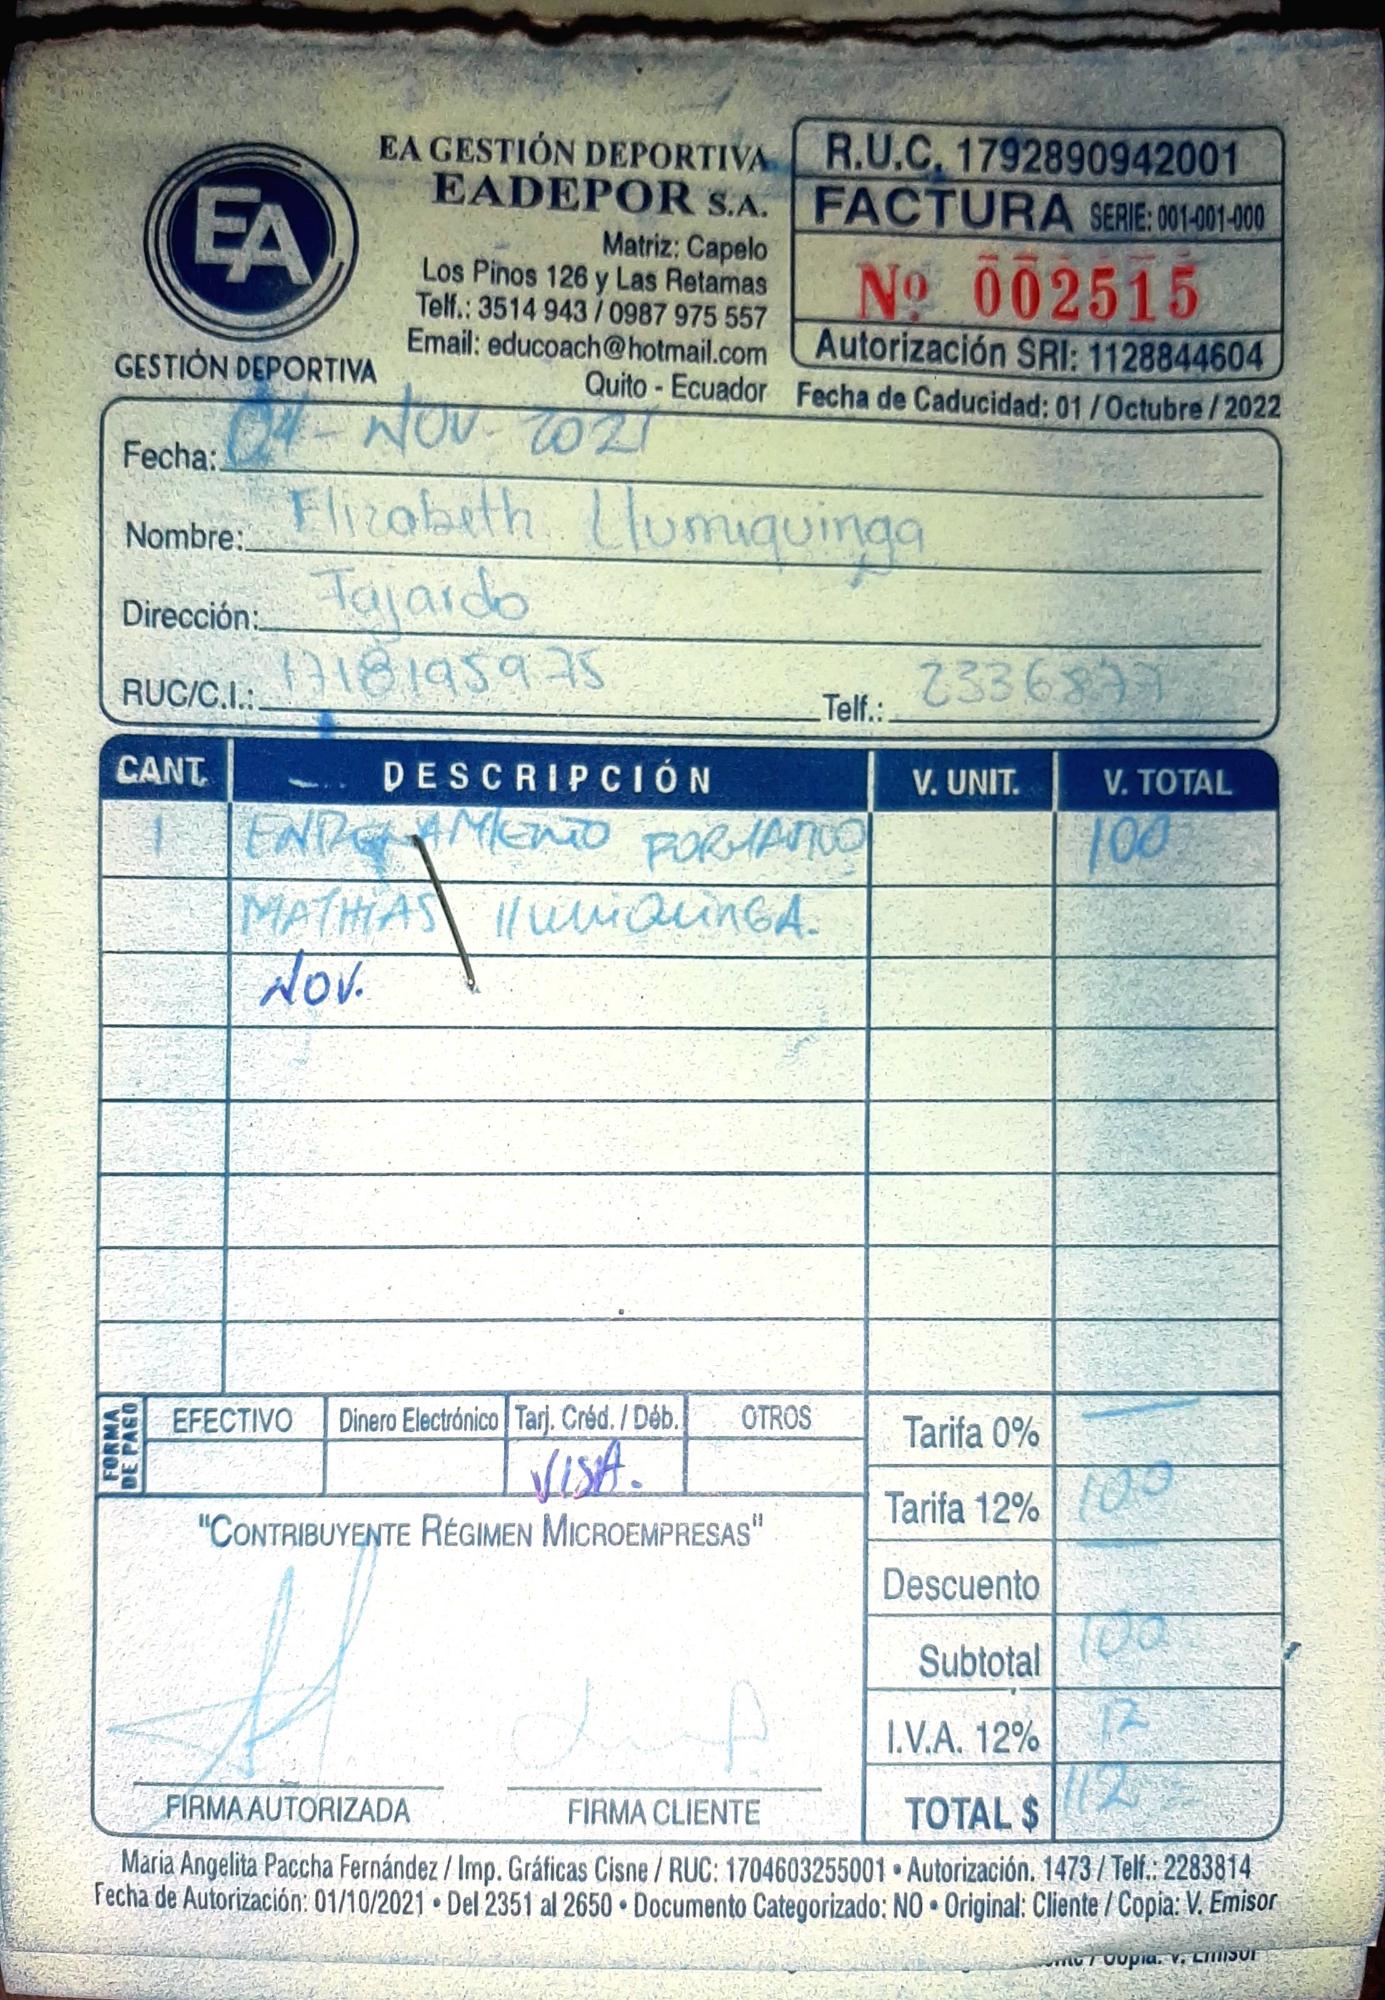 EA
GESTIÓN DEPORTIVA
EA GESTIÓN DEPORTIVA
EADEPOR S.A.
Matriz: Capelo
Los Pinos 126 y Las Retamas
Telf.: 3514 943 / 0987 975 557
Email: educoach@hotmail.com
Quito - Ecuador
R.U.C. 1792890942001
FACTURA SERIE: 001-001-000
Nº 002515
Autorización SRI: 1128844604
Fecha de Caducidad: 01 / Octubre / 2022
Fecha: 04 - NOV - 2021
Nombre: Elizabeth Llumiquinga
Dirección: Fajardo
RUC/C.I.: 1718195975 Telf.: 2336877
CANT. DESCRIPCIÓN V. UNIT. V. TOTAL
1 ENTRENAMIENTO FORMATIVO 100
MATHIAS llumiQuinGA.
NOV.
FORMA DE PAGO
EFECTIVO Dinero Electrónico Tarj. Créd. / Déb. OTROS
VISA.
Tarifa 0% —
Tarifa 12% 100
Descuento —
Subtotal 100
I.V.A. 12% 12
TOTAL $ 112
"CONTRIBUYENTE RÉGIMEN MICROEMPRESAS"
FIRMA AUTORIZADA FIRMA CLIENTE
Maria Angelita Paccha Fernández / Imp. Gráficas Cisne / RUC: 1704603255001 • Autorización. 1473 / Telf.: 2283814
Fecha de Autorización: 01/10/2021 • Del 2351 al 2650 • Documento Categorizado: NO • Original: Cliente / Copia: V. Emisor
/ Copia: V. Emisor